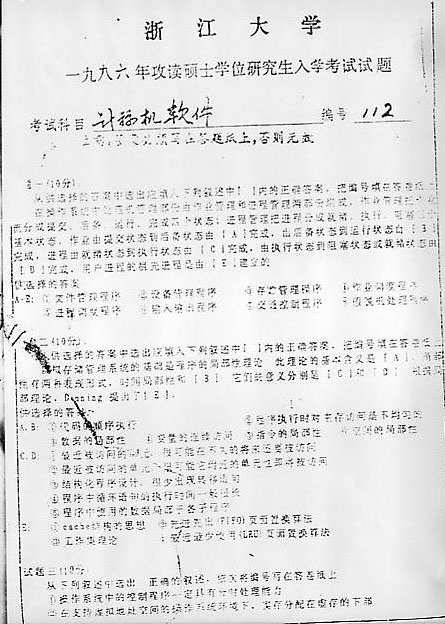 浙江大学
一九九六年攻读硕士学位研究生入学考试试题
考试科目 计算机软件 编号 112
题一(10分)
从供选择的答案中选出应填入下列叙述中[ ]内的正确答案，把编号填在答卷纸上
基本状态，作业由提交状态到后备状态由[A]完成，由后备状态到运行状态由[B]
完成，进程由就绪状态到执行状态由[C]完成，由执行状态到阻塞状态或就绪状态由
[D]完成，用户进程的祖先进程是由[E]建立的
供选择的答案
A-E: ①文件管理程序 ②设备管理程序 ③存贮管理程序 ④作业调度程序
⑤进程调度程序 ⑥输入输出程序 ⑦交通控制程序
题二(10分)
从供选择的答案中选出应填入下列叙述中[ ]内的正确答案，把编号填在答卷纸上
虚拟存储管理系统的基础是程序的局部性理论 此理论的基本含义是[A]。局部
性有两种表现形式，时间局部性和[B] 它们的意义分别是[C]和[D] 根据局
部理论，Denning 提出了[E]。
供选择的答案
A.B: ①代码的顺序执行 ②程序执行时对主存访问是不均匀的
③数据的局部性 ④变量的连续访问 ⑤指令的局部性 ⑥空间的局部性
C.D: ①最近被访问的单元，很可能在不久的将来还要被访问
②最近被访问的单元，很可能它附近的单元也即将被访问
③结构化程序设计，很少出现转移语句
④程序中循环语句的执行时间一般很长
⑤程序中使用的数据局部于各子程序
E: ①cache结构的思想 ②先进先出(FIFO)页面置换算法
③工作集理论 ④最近最少使用(LRU)页面置换算法
试题三(10分)
从下列叙述中选出 正确的叙述，依次将编号写在答卷纸上
①操作系统中的控制程序一定具有计时处理能力
②在支持虚拟地址空间的操作系统环境下，实存分配在虚存的下部